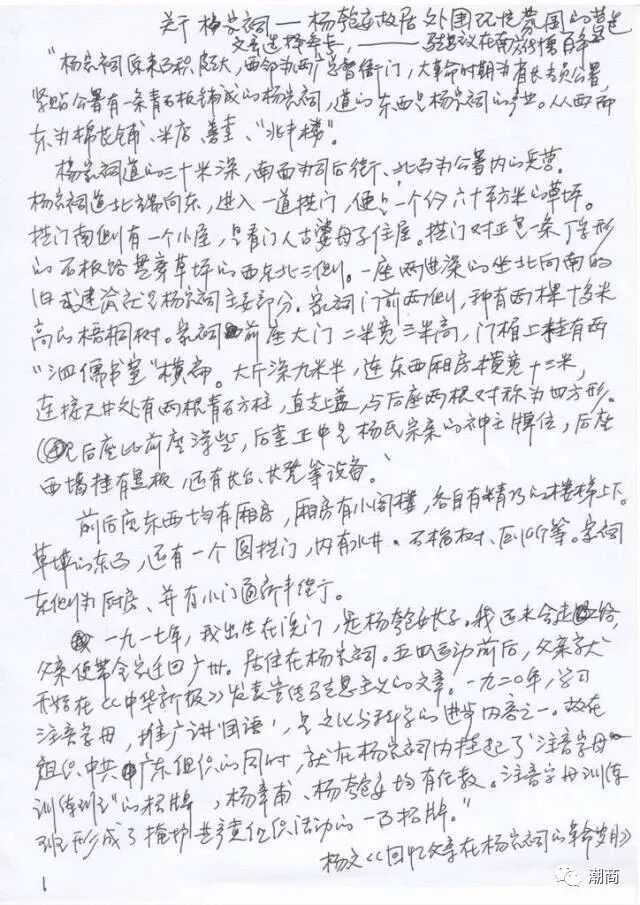 关于杨家祠——杨匏安故居外围环境氛围的营造
"杨家祠原来面积较大，西邻为两广总督衙门，大革命时期为省长专员公署，
紧贴公署有一条青石板铺成的杨家祠，道的东西是杨家祠的产业。从西而
东为棉花铺、米店、善圭、"兆丰楼"。
杨家祠道约三十米深，南面为司后街、北面为公署内的兵营。
杨家祠道北端向东，进入一道拱门，便是一个约六十平方米的草坪。
拱门南侧有一个小屋，是看门人古婆母子住屋。拱门对正是一条丁字形
的石板路贯穿草坪的西东北三侧。一座两进深的坐北向南的
旧式建筑就是杨家祠主要部分。家祠门前两侧，种有两棵十多米
高的梧桐树。家祠前座大门二米宽三米高，门楣上挂有两
"泗儒书室"横匾。大厅深九米半，连东西厢房横宽十三米，
连接天井处有两根青石方柱，直支上盖，与后座两根对称为四方形。
后座比前座深些，后堂正中是杨氏宗亲的神主牌位，后座
西墙挂有黑板，还有长台、长凳等设备。
前后座东西均有厢房，厢房有小阁楼，各自有精巧的楼梯上下。
草坪的东面，还有一个圆拱门，内有水井、石榴树、厕所等。家祠
东侧为厨房、并有小门通新丰街。
一九一七年，我出生在澳门，是杨匏安长子。我还未会走路，
父亲便带全家迁回广州。居住在杨家祠。五四运动前后，父亲就
开始在《中华新报》发表宣传马克思主义的文章。一九二〇年，学习
注音字母，推广讲国语，是文化与科学的进步内容之一。故在
组织中共广东组织的同时，就在杨家祠内挂起了"注音字母
训练班"的招牌，杨章甫、杨匏安均有任教。注音字母训练
班形成了掩护共产党组织活动的一面招牌。"
杨文《回忆父亲在杨家祠的革命岁月》
1
潮商